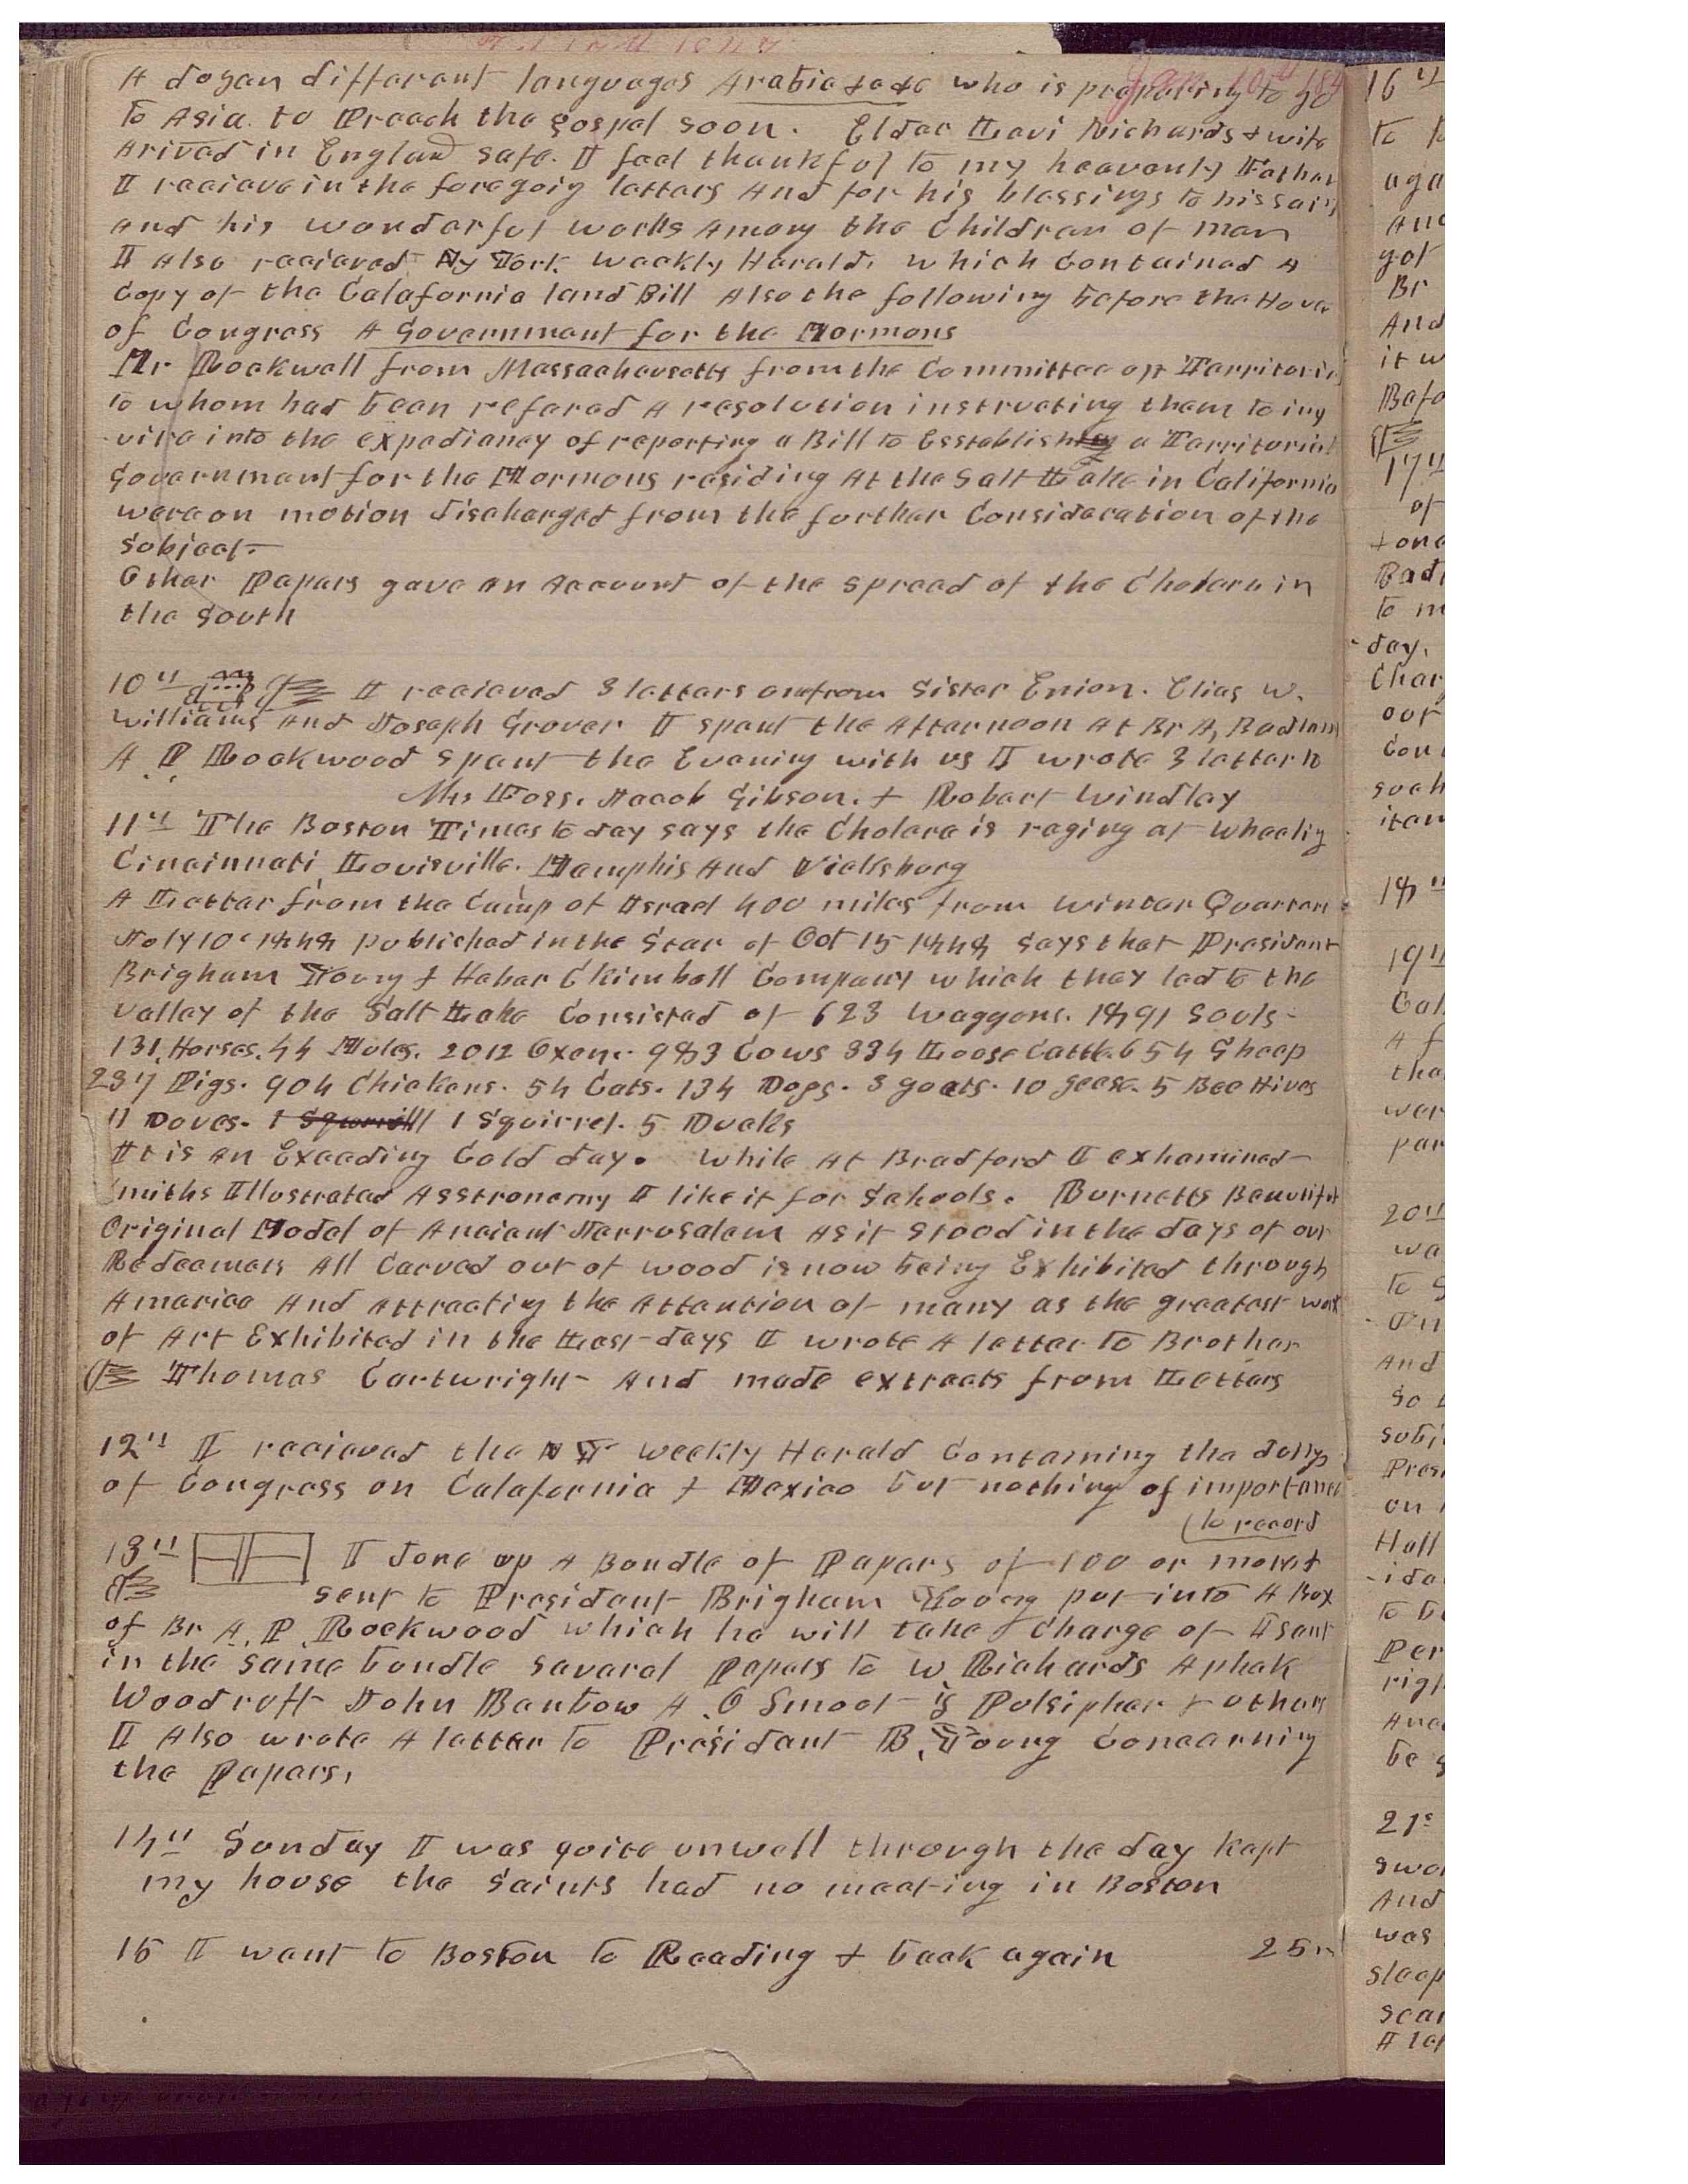 Jan 10th 184
A dozen different languages Arabic &c &c who is prepareing to go
to Asia to Preach the gospel soon. Elder Levi Richards & wife
arived in England safe. I feel thankful to my heavenly Father
I recieve in the foregoig letters And for his blessings to his saints
and his wonderful works Among the Children of men
I Also recieved Ny York weekly Herald, which Contained A
Copy of the Calafornia land Bill Also the following before the House
of Congress A Government for the Mormons
Mr Rockwell from Massachusetts from the Committee on Territories
to whom had been refered A resolution instructing them to inq
-uire into the expediancy of reporting a Bill to Esstablish a Territorial
Government for the Mormons residing At the Salt Lake in California
were on motion discharged from the further Consideration of the
subject-
Other Papers gave an Account of the spread of the Cholera in
the South
10th I recieved 3 letters one from Sister Enion. Elias W.
Williams And Joseph Grover I spent the Afternoon At Br A, Badlams
A. P. Rockwood spent the Evening with us I wrote 3 letter to
Mrs Foss. Jacob Gibson. & Robert Windley
11th The Boston Times to day says the Cholera is raging at Wheelig
Cincinnati Louisville. Memphis And Vicksburg
A Letter from the Camp of Israel 400 miles from Winter Quarters
July 10th 1848 published in the Star of Oct 15 1848 says that President
Brigham Young & Heber C Kimball Company which they led to the
valley of the Salt Lake Consisted of 623 waggons. 1891 Souls-
131, Horses. 44 Mules. 2012 Oxen. 983 Cows 334 Loose Cattle 654 Sheep
237 Pigs. 904 Chickens. 54 Cats. 134 Dogs. 3 goats. 10 geese. 5 Bee Hives
11 Doves. 1 Squirrill 1 Squirrel. 5 Ducks
It is an Exceeding Cold day. While At Bradford I exhamined
Smiths Illustrated Asstronemy I like it for Schools. Burnetts Beautiful
Original Model of Ancient Jerrusalem As it stood in the days of our
Redeemers All Carved out of wood is now being Exhibited through
America And attracting the Attention of many as the greatest work
of Art Exhibited in the Last days I wrote A letter to Brother
Thomas Cartwright And made extracts from Letters
12th I recieved the N Y weekly Herald Containing the doings
of Congress on Calafornia & Mexico but nothing of importance
(to record
13th I done up A Bundle of Papers of 100 or more &
sent to President Brigham Young put into A Box
of Br A. P. Rockwood which he will take Charge of I sent
in the same bundle several Papers to W Richards Aphek
Woodruff John Benbow A. O Smoot Z Pulsipher & others
I Also wrote A letter to President B, Young Concerning
the Papers,
14th Sunday I was quite unwell through the day kept
my house the Saints had no meeting in Boston
15 I went to Boston to Reading & back again 25 m
16th
to
aga
And
got
Br
And
it w
Befo
17th
of
& one
Badl
to m
-day,
Char
our
Con
such
item
18th
19th
Cal
A f
tha
wer
par
20th
wa
to
And
so
subj
Pres
on
Hall
-ide
to b
Per
righ
Anc
be
21s
swe
And
was
sleep
scar